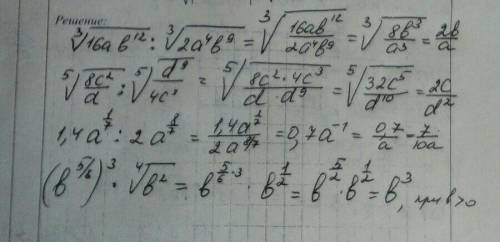 Решение:
∛(16ab¹²) : ∛(2a⁴b⁹) = ∛(16ab¹²/2a⁴b⁹) = ∛(8b³/a³) = 2b/a
⁵√(8c²/d) : ⁵√(d⁹/4c³) = ⁵√(8c²·4c³/d·d⁹) = ⁵√(32c⁵/d¹⁰) = 2c/d²
1,4a^(1/7) : 2a^(8/7) = 1,4a^(1/7)/2a^(8/7) = 0,7a⁻¹ = 0,7/a = 7/10a
(b^(5/6))³ · ⁴√b² = b^(5/6·3) · b^(1/2) = b^(5/2) · b^(1/2) = b³, при b>0